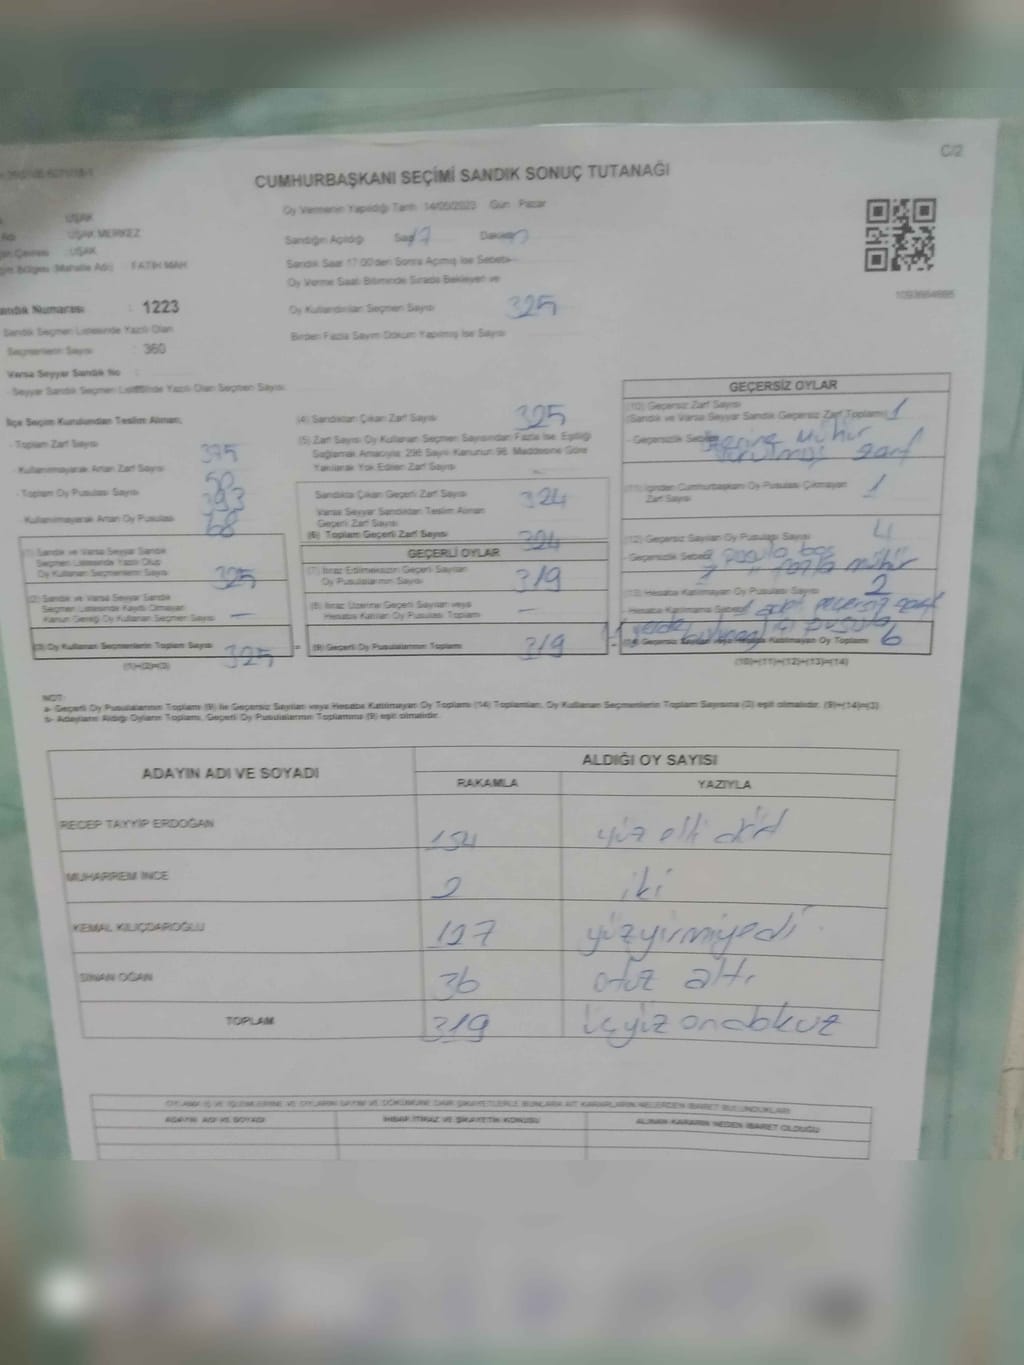 C/2
CUMHURBAŞKANI SEÇİMİ SANDIK SONUÇ TUTANAĞI
UŞAK
UŞAK MERKEZ
UŞAK
Bölgesi (Mahalle Adı) : FATİH MAH
Sandık Numarası : 1223
Sandık Seçmen Listesinde Yazılı Olan
Seçmenlerin Sayısı : 360
Varsa Seyyar Sandık No :
Seyyar Sandık Seçmen Listesinde Yazılı Olan Seçmen Sayısı:
Oy Vermenin Yapıldığı Tarih : 14/05/2023 Gün : Pazar
Sandığın Açıldığı Saat 17 Dakika
Sandık Saat 17.00'den Sonra Açılmış İse Sebebi
Oy Verme Saati Bitiminde Sırada Bekleyen ve
Oy Kullandırılan Seçmen Sayısı 325
Birden Fazla Sayım Döküm Yapılmış İse Sayısı
1093664665
İlçe Seçim Kurulundan Teslim Alınan;
- Toplam Zarf Sayısı 375
- Kullanılmayarak Artan Zarf Sayısı 50
- Toplam Oy Pusulası Sayısı 393
- Kullanılmayarak Artan Oy Pusulası 68
(1) Sandık ve Varsa Seyyar Sandık
Seçmen Listesinde Yazılı Olup
Oy Kullanan Seçmenlerin Sayısı 325
(2) Sandık ve Varsa Seyyar Sandık
Seçmen Listesinde Kaydı Olmayan
Kanun Gereği Oy Kullanan Seçmen Sayısı —
(3) Oy Kullanan Seçmenlerin Toplam Sayısı 325
(1)+(2)=(3)
(4) Sandıktan Çıkan Zarf Sayısı 325
(5) Zarf Sayısı Oy Kullanan Seçmen Sayısından Fazla İse, Eşitliği
Sağlamak Amacıyla; 298 Sayılı Kanunun 98. Maddesine Göre
Yakılarak Yok Edilen Zarf Sayısı
Sandıkta Çıkan Geçerli Zarf Sayısı 324
Varsa Seyyar Sandıktan Teslim Alınan
Geçerli Zarf Sayısı
(6) Toplam Geçerli Zarf Sayısı 324
GEÇERLİ OYLAR
(7) İtiraz Edilmeksizin Geçerli Sayılan
Oy Pusulalarının Sayısı 319
(8) İtiraz Üzerine Geçerli Sayılan veya
Hesaba Katılan Oy Pusulası Toplamı —
= (9) Geçerli Oy Pusulalarının Toplamı 319
GEÇERSİZ OYLAR
(10) Geçersiz Zarf Sayısı
(Sandık ve Varsa Seyyar Sandık Geçersiz Zarf Toplamı) 1
- Geçersizlik Sebebi üzerine mühür
vurulmuş zarf
(11) İçinden Cumhurbaşkanı Oy Pusulası Çıkmayan
Zarf Sayısı 1
(12) Geçersiz Sayılan Oy Pusulası Sayısı 4
- Geçersizlik Sebebi pusula boş
fazla mühür
(13) Hesaba Katılmayan Oy Pusulası Sayısı 2
- Hesaba Katılmama Sebebi 1 adet geçersiz zarf
pusula
(14) Geçersiz Sayılan veya Hesaba Katılmayan Oy Toplamı 6
(10)+(11)+(12)+(13)=(14)
NOT:
a- Geçerli Oy Pusulalarının Toplamı (9) ile Geçersiz Sayılan veya Hesaba Katılmayan Oy Toplamı (14) Toplamları, Oy Kullanan Seçmenlerin Toplam Sayısına (3) eşit olmalıdır. (9)+(14)=(3)
b- Adayların Aldığı Oyların Toplamı, Geçerli Oy Pusulalarının Toplamına (9) eşit olmalıdır.
ADAYIN ADI VE SOYADI
ALDIĞI OY SAYISI
RAKAMLA YAZIYLA
RECEP TAYYİP ERDOĞAN 154 yüz elli dört
MUHARREM İNCE 2 iki
KEMAL KILIÇDAROĞLU 127 yüzyirmiyedi
SİNAN OĞAN 36 otuz altı
TOPLAM 319 üçyüz ondokuz
OYLAMA İŞ VE İŞLEMLERİNE VE OYLARIN SAYIM VE DÖKÜMÜNE DAİR ŞİKAYETLERLE BUNLARA AİT KARARLARIN NELERDEN İBARET BULUNDUKLARI
ADAYIN ADI VE SOYADI İHBAR, İTİRAZ VE ŞİKAYETİN KONUSU ALINAN KARARIN NEDEN İBARET OLDUĞU